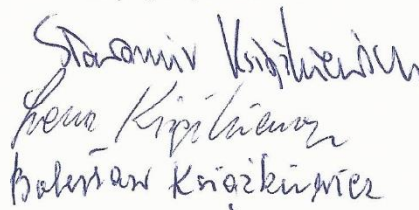 Sławomir Książkiewicz
Irena Książkiewicz
Bolesław Książkiewicz